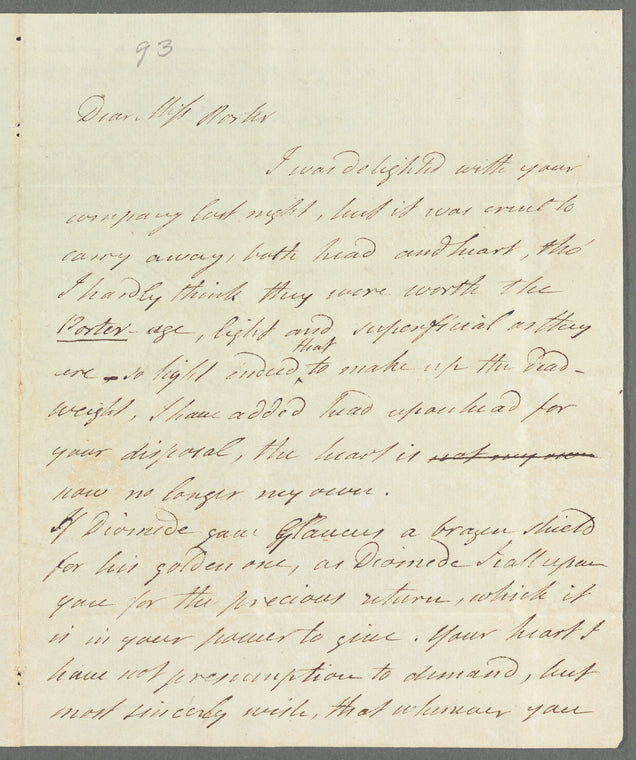 93
Dear Miss Porter
I was delighted with your
company last night, but it was cruel to
carry away, both head and heart, tho'
I hardly think they were worth the
Porter-age, light and superficial as they
are - so light indeed that to make up the dead-
weight, I have added head upon head for
your disposal, the heart is not my own
now no longer my own.
If Diomede gave Glaucus a brazen shield
for his golden one, as Diomede I call upon
you for the precious return, which it
is in your power to give. Your heart I
have not presumption to demand, but
most sincerely wish, that whenever you